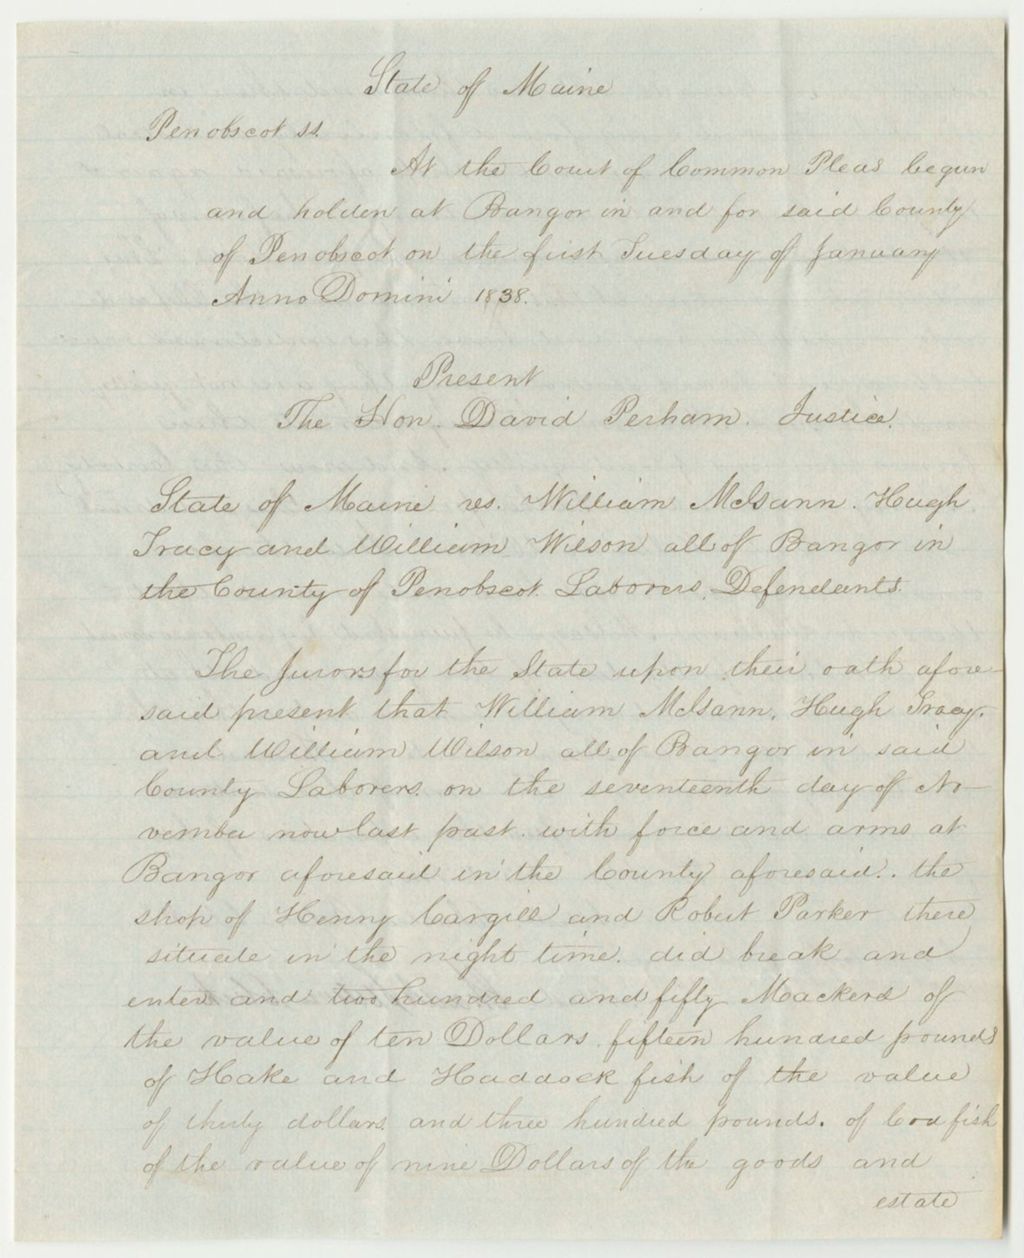 State of Maine
Penobscot ss.
At the Court of Common Pleas begun
and holden at Bangor in and for said County
of Penobscot on the first Tuesday of January
Anno Domini 1838.
Present
The Hon. David Perham. Justice.
State of Maine vs. William McIsann. Hugh
Tracy and William Wilson all of Bangor in
the County of Penobscot Laborers, Defendants.
The Jurors for the State upon their oath afore-
said present that William McIsann, Hugh Tracy.
and William Wilson all of Bangor in said
County Laborers. on the seventeenth day of No-
vember now last past. with force and arms at
Bangor aforesaid in the County aforesaid. the
shop of Henry Cargill and Robert Parker there
situate in the night time. did break and
enter and two hundred and fifty Mackerel of
the value of ten Dollars. fifteen hundred pounds
of Hake and Haddock fish of the value
of thirty dollars and three hundred pounds. of Cod fish
of the value of nine Dollars of the goods and
estate